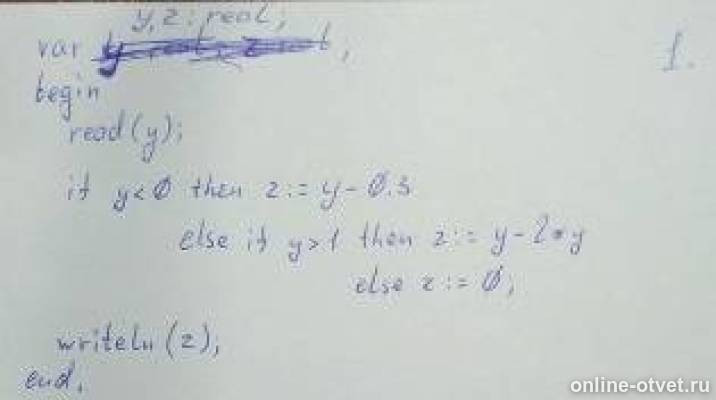 y,z : real;
var ;
1.
begin
read(y);
if y<0 then z:= y-0.3
else if y>1 then z:= y-2*y
else z:= 0;
writeln(z);
end.
online-otvet.ru